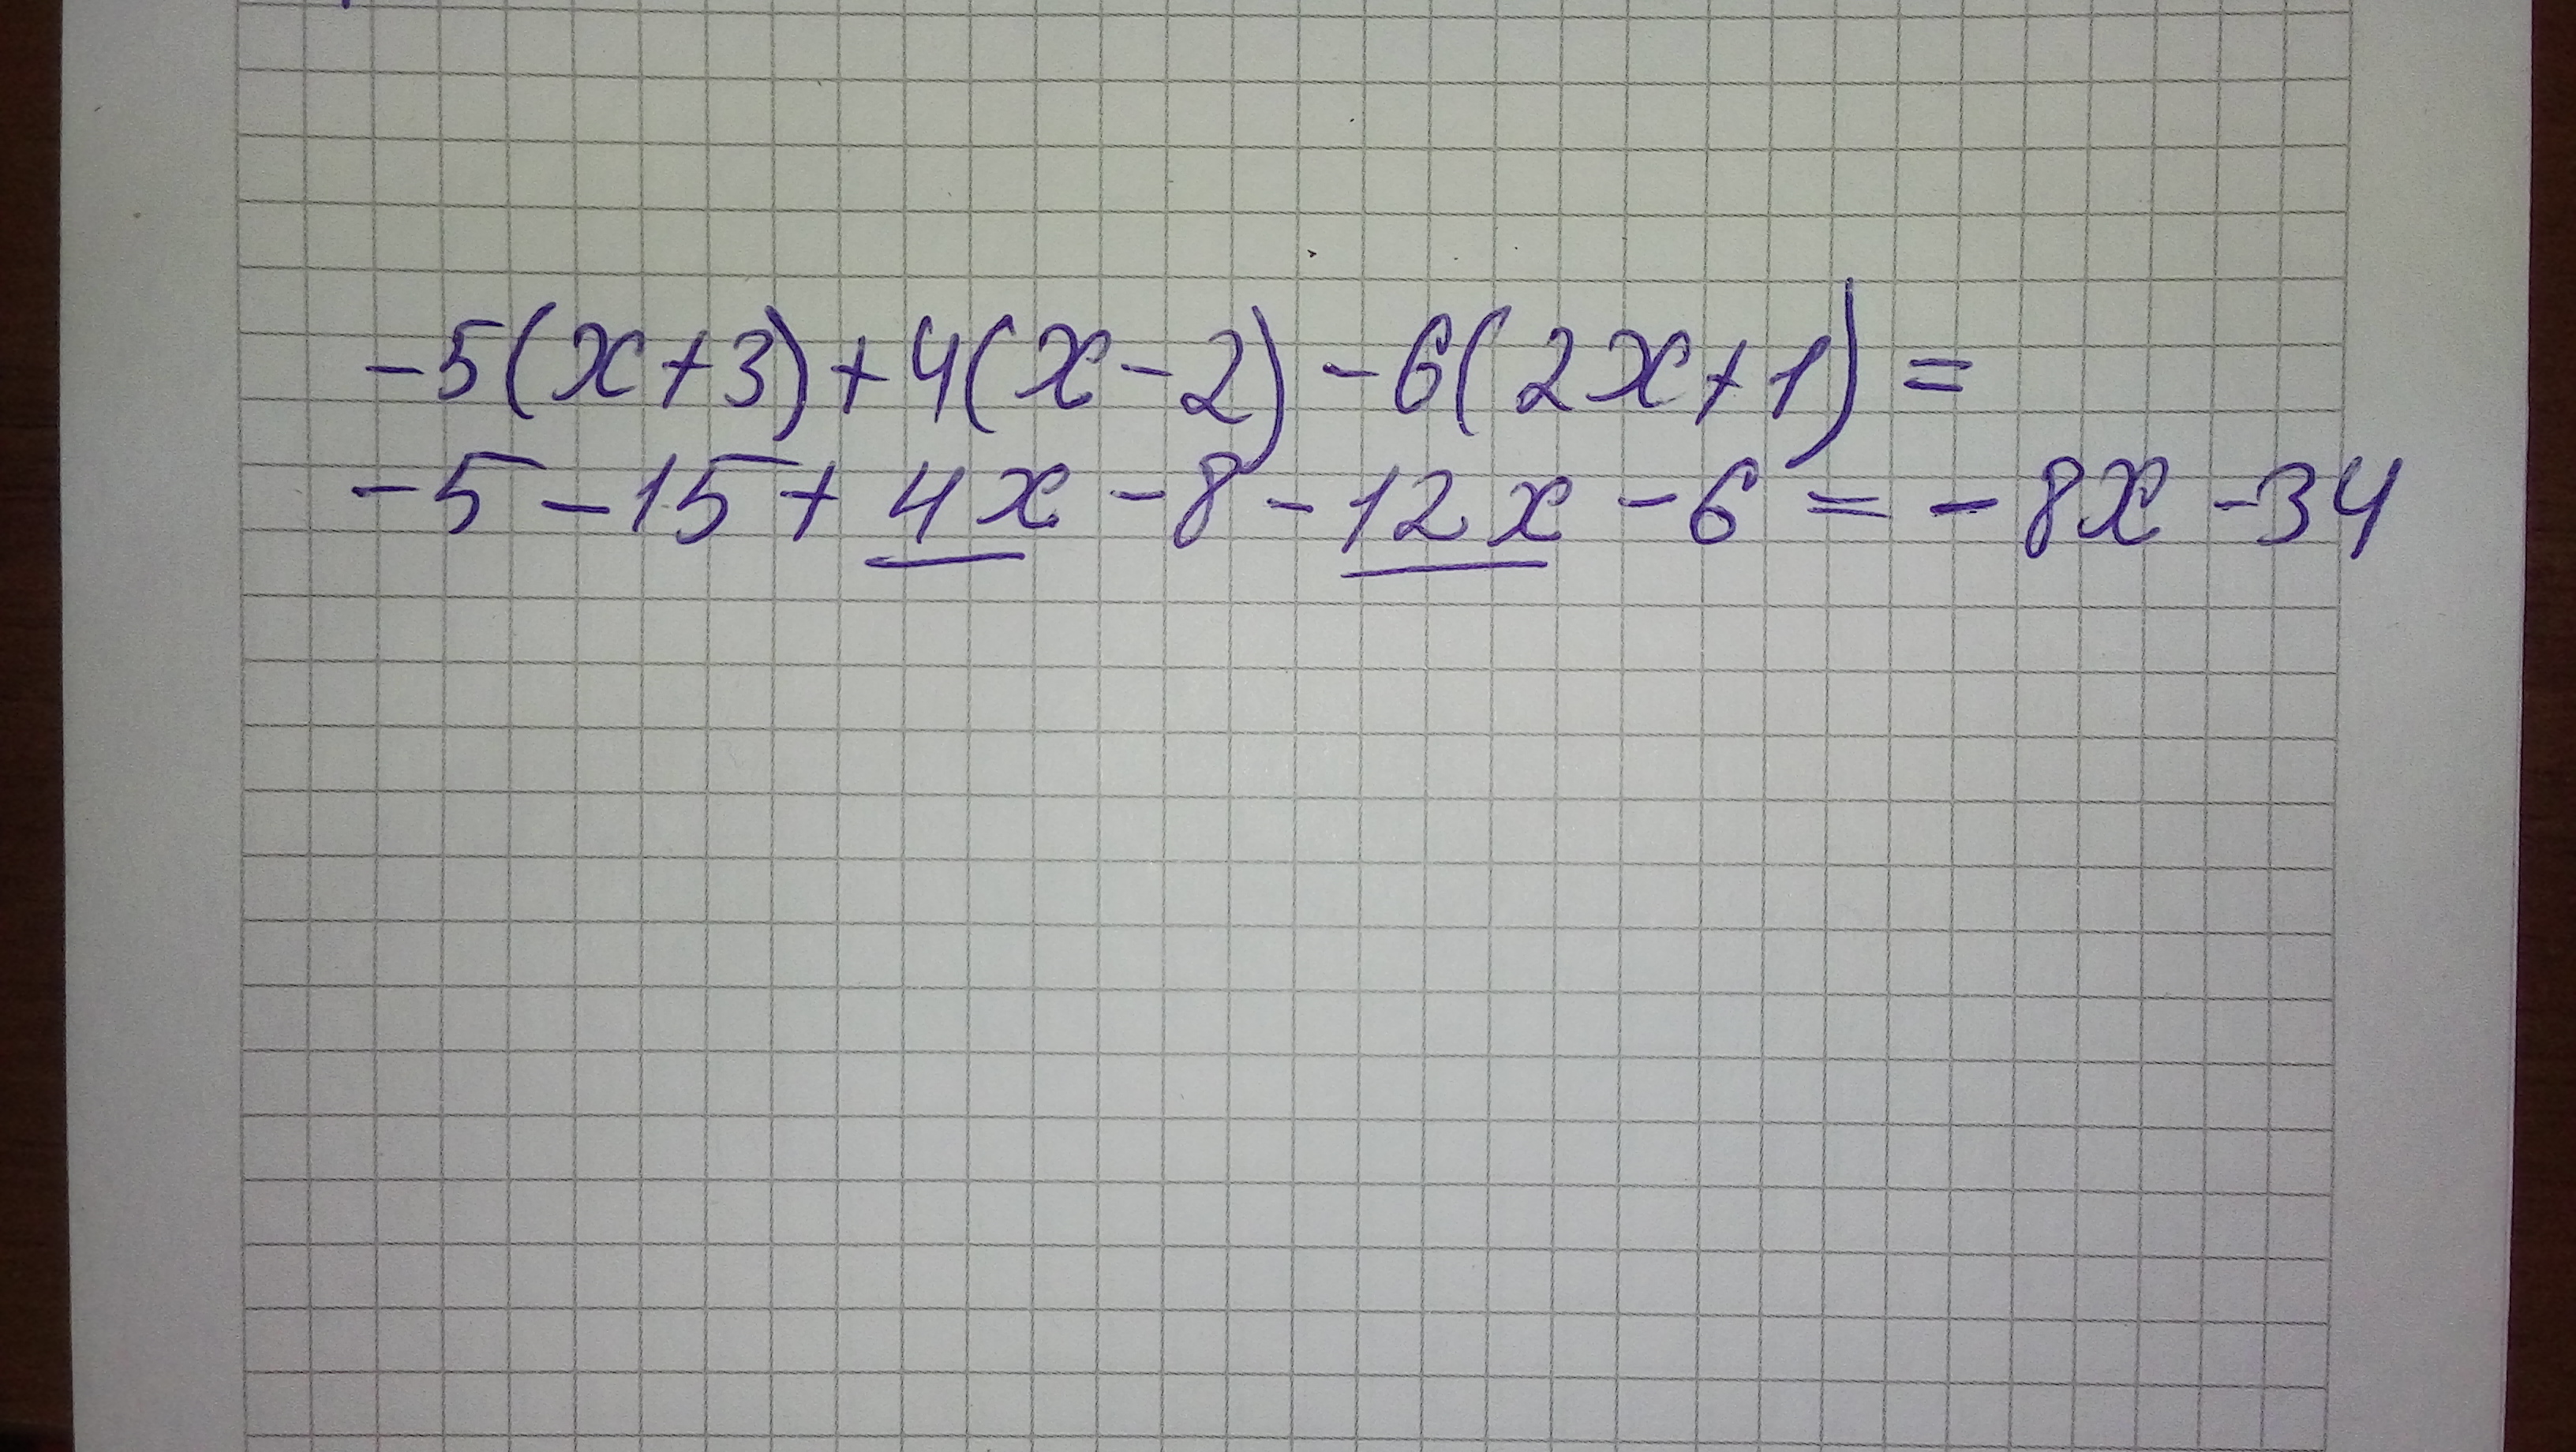 -5(x+3)+4(x-2)-6(2x+1)=
-5-15+4x-8-12x-6=-8x-34